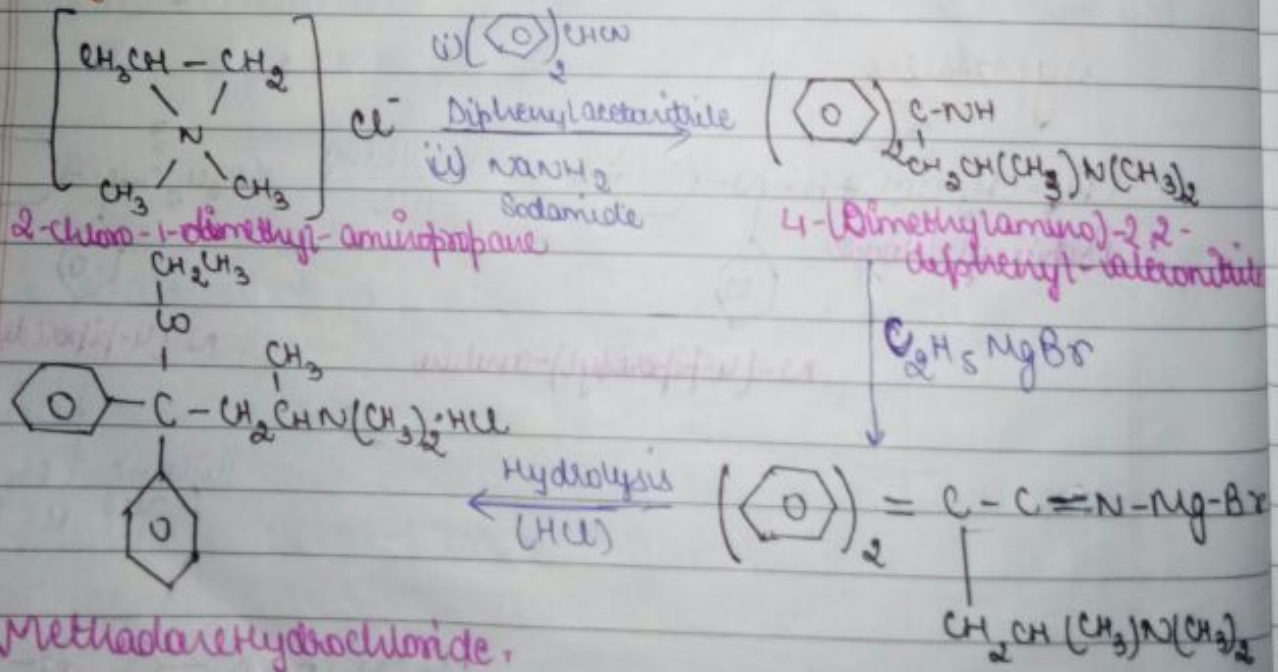 CH3CH - CH2
N
CH3 CH3
Cl-
(i) ( )2 CHCN
Diphenylacetonitrile
ii) NaNH2
Sodamide
( )2 C-NH
CH2CH(CH3)N(CH3)2
2-chloro-1-dimethyl-aminopropane
4-(Dimethylamino)-2,2-
diphenyl-valeronitrile
C2H5MgBr
CH2CH3
CO
CH3
C - CH2CHN(CH3)2·HCl
Hydrolysis
(HCl)
( )2 = C - C = N-Mg-Br
CH2CH(CH3)N(CH3)2
Methadone Hydrochloride.